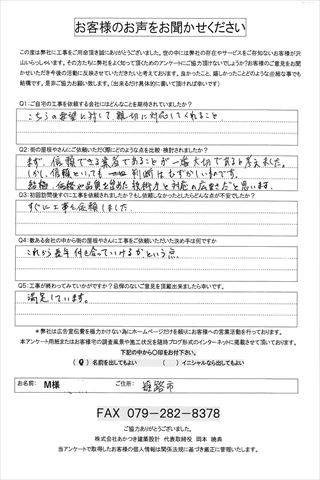 お客様のお声をお聞かせください
この度は弊社に工事をご用命頂き誠にありがとうございました。世の中には弊社の存在やサービスをご存知ないお客様が沢
山いらっしゃいます。その方たちに弊社をよく知って頂くためのアンケートにご協力頂けないでしょうか?お客様のご意見をお聞
かせいただき今後の活動に反映させていただきたいと考えております。良かったこと、嬉しかったことどのような些細な事でも
結構です。是非ご協力お願い致します。(出来るだけ具体的に書いて頂ければ幸いです)
Q1:ご自宅の工事を依頼する会社にはどんなことを期待されていましたか?
こちらの要望に対して、親切に対応してくれること。
Q2:街の屋根やさんにご依頼いただく際にどのような点を比較・検討されましたか?
まず、信頼できる業者であることが一番大切であると考えました。
しかし、信頼といっても 判断はむずかしいものです。
結局、価格や品質を含めた技術力と対応の広さだと思います。
Q3:初回訪問後すぐに工事を依頼されましたか?もし依頼しなかったとしたらどんな点が不安でしたか?
すぐに工事を依頼しました。
Q4:数ある会社の中から街の屋根やさんにご依頼いただいた決め手は何ですか
これから長年付き合っていけるかという点。
Q5:工事が終わってみていかがですか?忌憚のないご意見を頂戴出来ましたら幸いです。
満足しています。
*弊社は広告宣伝費を極力かけない為にホームページだけを頼りにお客様への営業活動を行っております。
本アンケート用紙またはお客様宅の調査風景や施工状況を随時ブログ形式のインターネットに掲載させて頂いております。
下記の中から〇印をお付下さい。
(〇)名前を出してもよい ( )イニシャルなら出してもよい
お名前: M様 ご住所: 姫路市
FAX 079-282-8378
ご協力ありがとうございました。
株式会社あかつき建築設計 代表取締役 岡本 暁典
当アンケートで取得したお客様の個人情報は関係法規に基づき厳正に管理いたします。